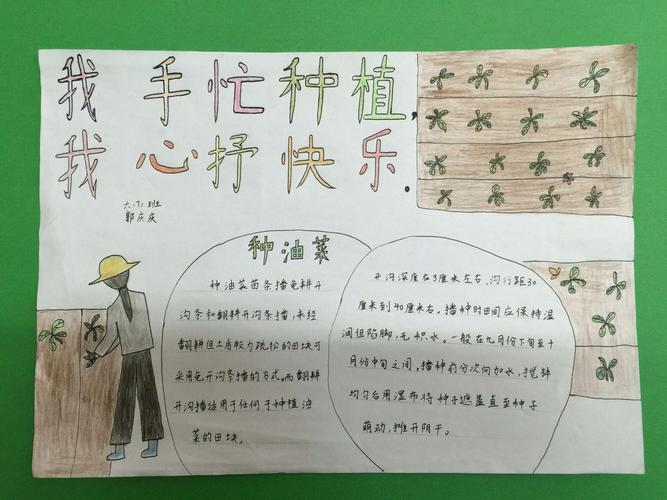 我手忙种植，
我心抒快乐.
六.(1)班
郭庆庆
种油菜
种油菜苗条播免耕开
沟条和翻耕开沟条播,未经
翻耕但土质较为疏松的田块可
采用免开沟条播的方式,而翻耕
开沟播适用于任何于种植油
菜的田块。
开沟深度在3厘米左右,沟行距30
厘米到40厘米右。播种时田间应保持湿
润但陷脚,无积水。一般在九月份下旬至十
月份中旬之间,播种前分次向加水,搅拌
均匀后用湿布将种子遮盖直至种子
萌动,摊开阴干。